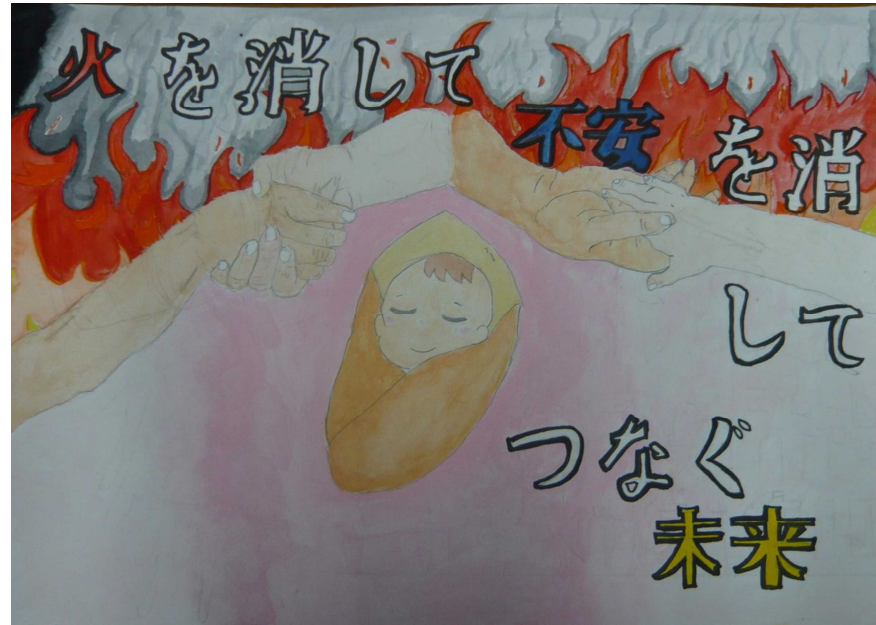 火を消して
不安を消
して
つなぐ
未来